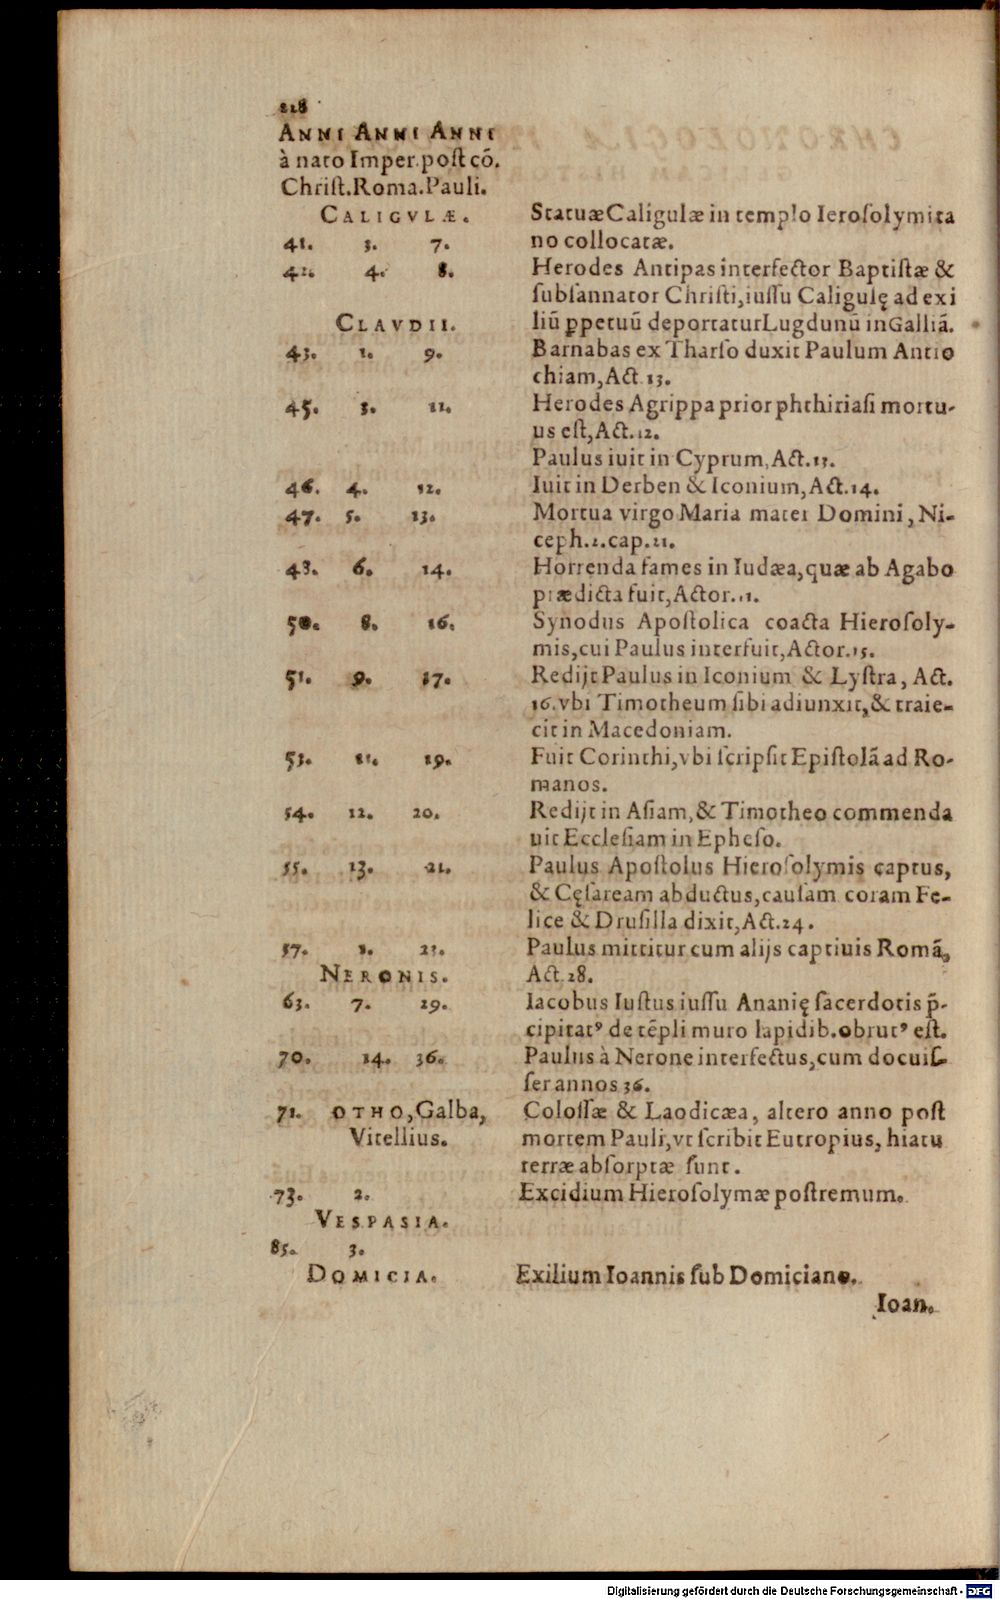 218
ANNI ANNI ANNI
à nato Imper. post cō.
Christ. Roma. Pauli.
CALIGVLÆ. Statuæ Caligulæ in templo Ierosolymita
41. 3. 7. no collocatæ.
42. 4. 8. Herodes Antipas interfector Baptistæ &
subsannator Christi, iussu Caligulę ad exi
CLAVDII. liū ꝑpetuū deportatur Lugdunū in Galliā.
43. 1. 9. Barnabas ex Tharso duxit Paulum Antio
chiam, Act. 13.
45. 3. 11. Herodes Agrippa prior phthiriasi mortu-
us est, Act. 12.
Paulus iuit in Cyprum, Act. 13.
46. 4. 12. Iuit in Derben & Iconium, Act. 14.
47. 5. 13. Mortua virgo Maria mater Domini, Ni-
ceph. 2. cap. 21.
48. 6. 14. Horrenda fames in Iudæa, quæ ab Agabo
prædicta fuit, Actor. 11.
50. 8. 16. Synodus Apostolica coacta Hierosoly-
mis, cui Paulus interfuit, Actor. 15.
51. 9. 17. Redijt Paulus in Iconium & Lystra, Act.
16. vbi Timotheum sibi adiunxit, & traie-
cit in Macedoniam.
53. 11. 19. Fuit Corinthi, vbi scripsit Epistolā ad Ro-
manos.
54. 12. 20. Redijt in Asiam, & Timotheo commenda
uit Ecclesiam in Epheso.
55. 13. 21. Paulus Apostolus Hierosolymis captus,
& Cęsaream abductus, causam coram Fe-
lice & Drusilla dixit, Act. 24.
57. 1. 23. Paulus mittitur cum alijs captiuis Romā,
NERONIS. Act. 28.
63. 7. 29. Iacobus Iustus iussu Ananię sacerdotis p̄-
cipitatꝰ de tēpli muro lapidib. obrutꝰ est.
70. 14. 36. Paulus à Nerone interfectus, cum docuis-
set annos 36.
71. OTHO, Galba, Colossæ & Laodicæa, altero anno post
Vitellius. mortem Pauli, vt scribit Eutropius, hiatu
terræ absorptæ sunt.
73. 2. Excidium Hierosolymæ postremum.
VESPASIA.
85. 3.
DOMICIA. Exilium Ioannis sub Domiciano.
Ioan.
Digitalisierung gefördert durch die Deutsche Forschungsgemeinschaft - DFG